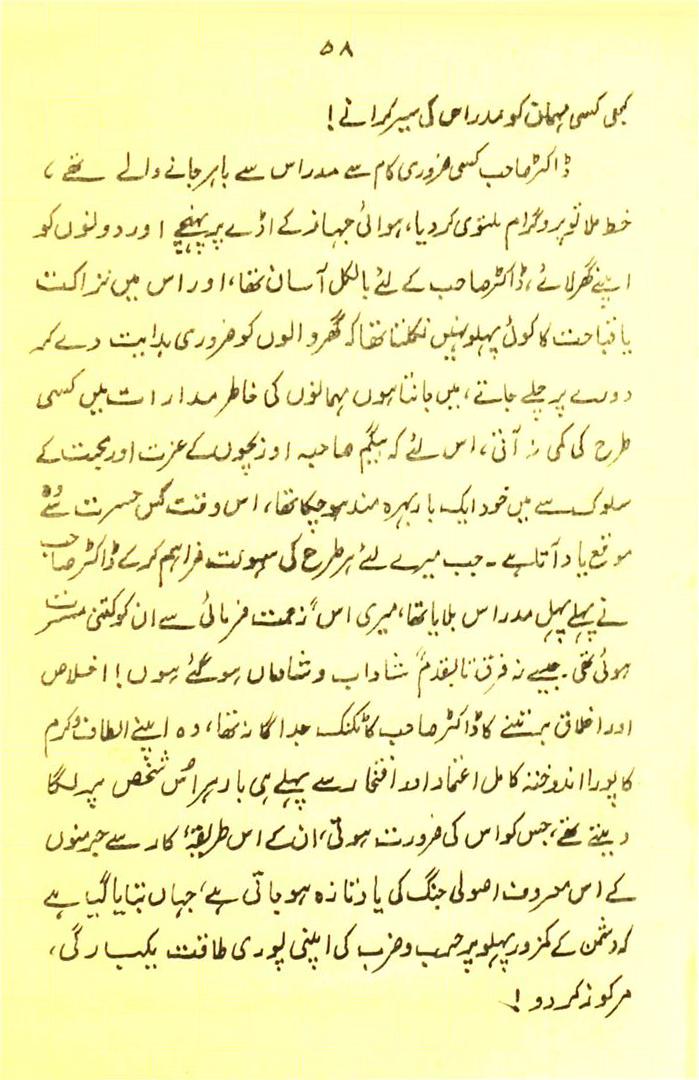 ۵۸
کبھی کسی مہمان کو مدراس کی سیر کراتے!
ڈاکٹر صاحب کسی ضروری کام سے مدراس سے باہر جانے والے تھے،
خط ملا تو پروگرام ملتوی کر دیا، ہوائی جہاز کے اڈے پر پہنچے اور دونوں کو
اپنے گھر لائے، ڈاکٹر صاحب کے لئے بالکل آسان تھا، اور اس میں نزاکت
یا قباحت کا کوئی پہلو نہیں نکلتا تھا کہ گھر والوں کو ضروری ہدایت دے کر
دورے پر چلے جاتے، میں جانتا ہوں مہمانوں کی خاطر مدارات میں کسی
طرح کی کمی نہ آتی، اس لئے کہ بیگم صاحبہ اور بچوں کے عزت اور محبت کے
سلوک سے میں خود ایک بار بہرہ مند ہو چکا تھا، اس وقت کس حسرت سے وہ
موقع یاد آتا ہے۔ جب میرے لئے ہر طرح کی سہولت فراہم کر کے ڈاکٹر صاحب
نے پہلے پہل مدراس بلایا تھا، میری اس "زحمت فرمائی سے ان کو کتنی مسرت
ہوئی تھی۔ جیسے "ز فرق تا بقدم" شاداب و شادماں ہو گئے ہوں! اخلاص
اور اخلاق برتنے کا ڈاکٹر صاحب کا ٹکنک جداگانہ تھا، وہ اپنے الطاف و کرم
کا پورا اندوختہ کامل اعتماد اور افتخار سے پہلے ہی بار ہر اُس شخص پر لگا
دیتے تھے، جس کو اس کی ضرورت ہوتی، ان کے اس طریقۂ کار سے جرمنوں
کے اس معروف اصولی جنگ کی یاد تازہ ہو جاتی ہے، جہاں بتایا گیا ہے
کہ دشمن کے کمزور پہلو پر حرب و ضرب کی اپنی پوری طاقت یکبارگی،
مرکوز کر دو!